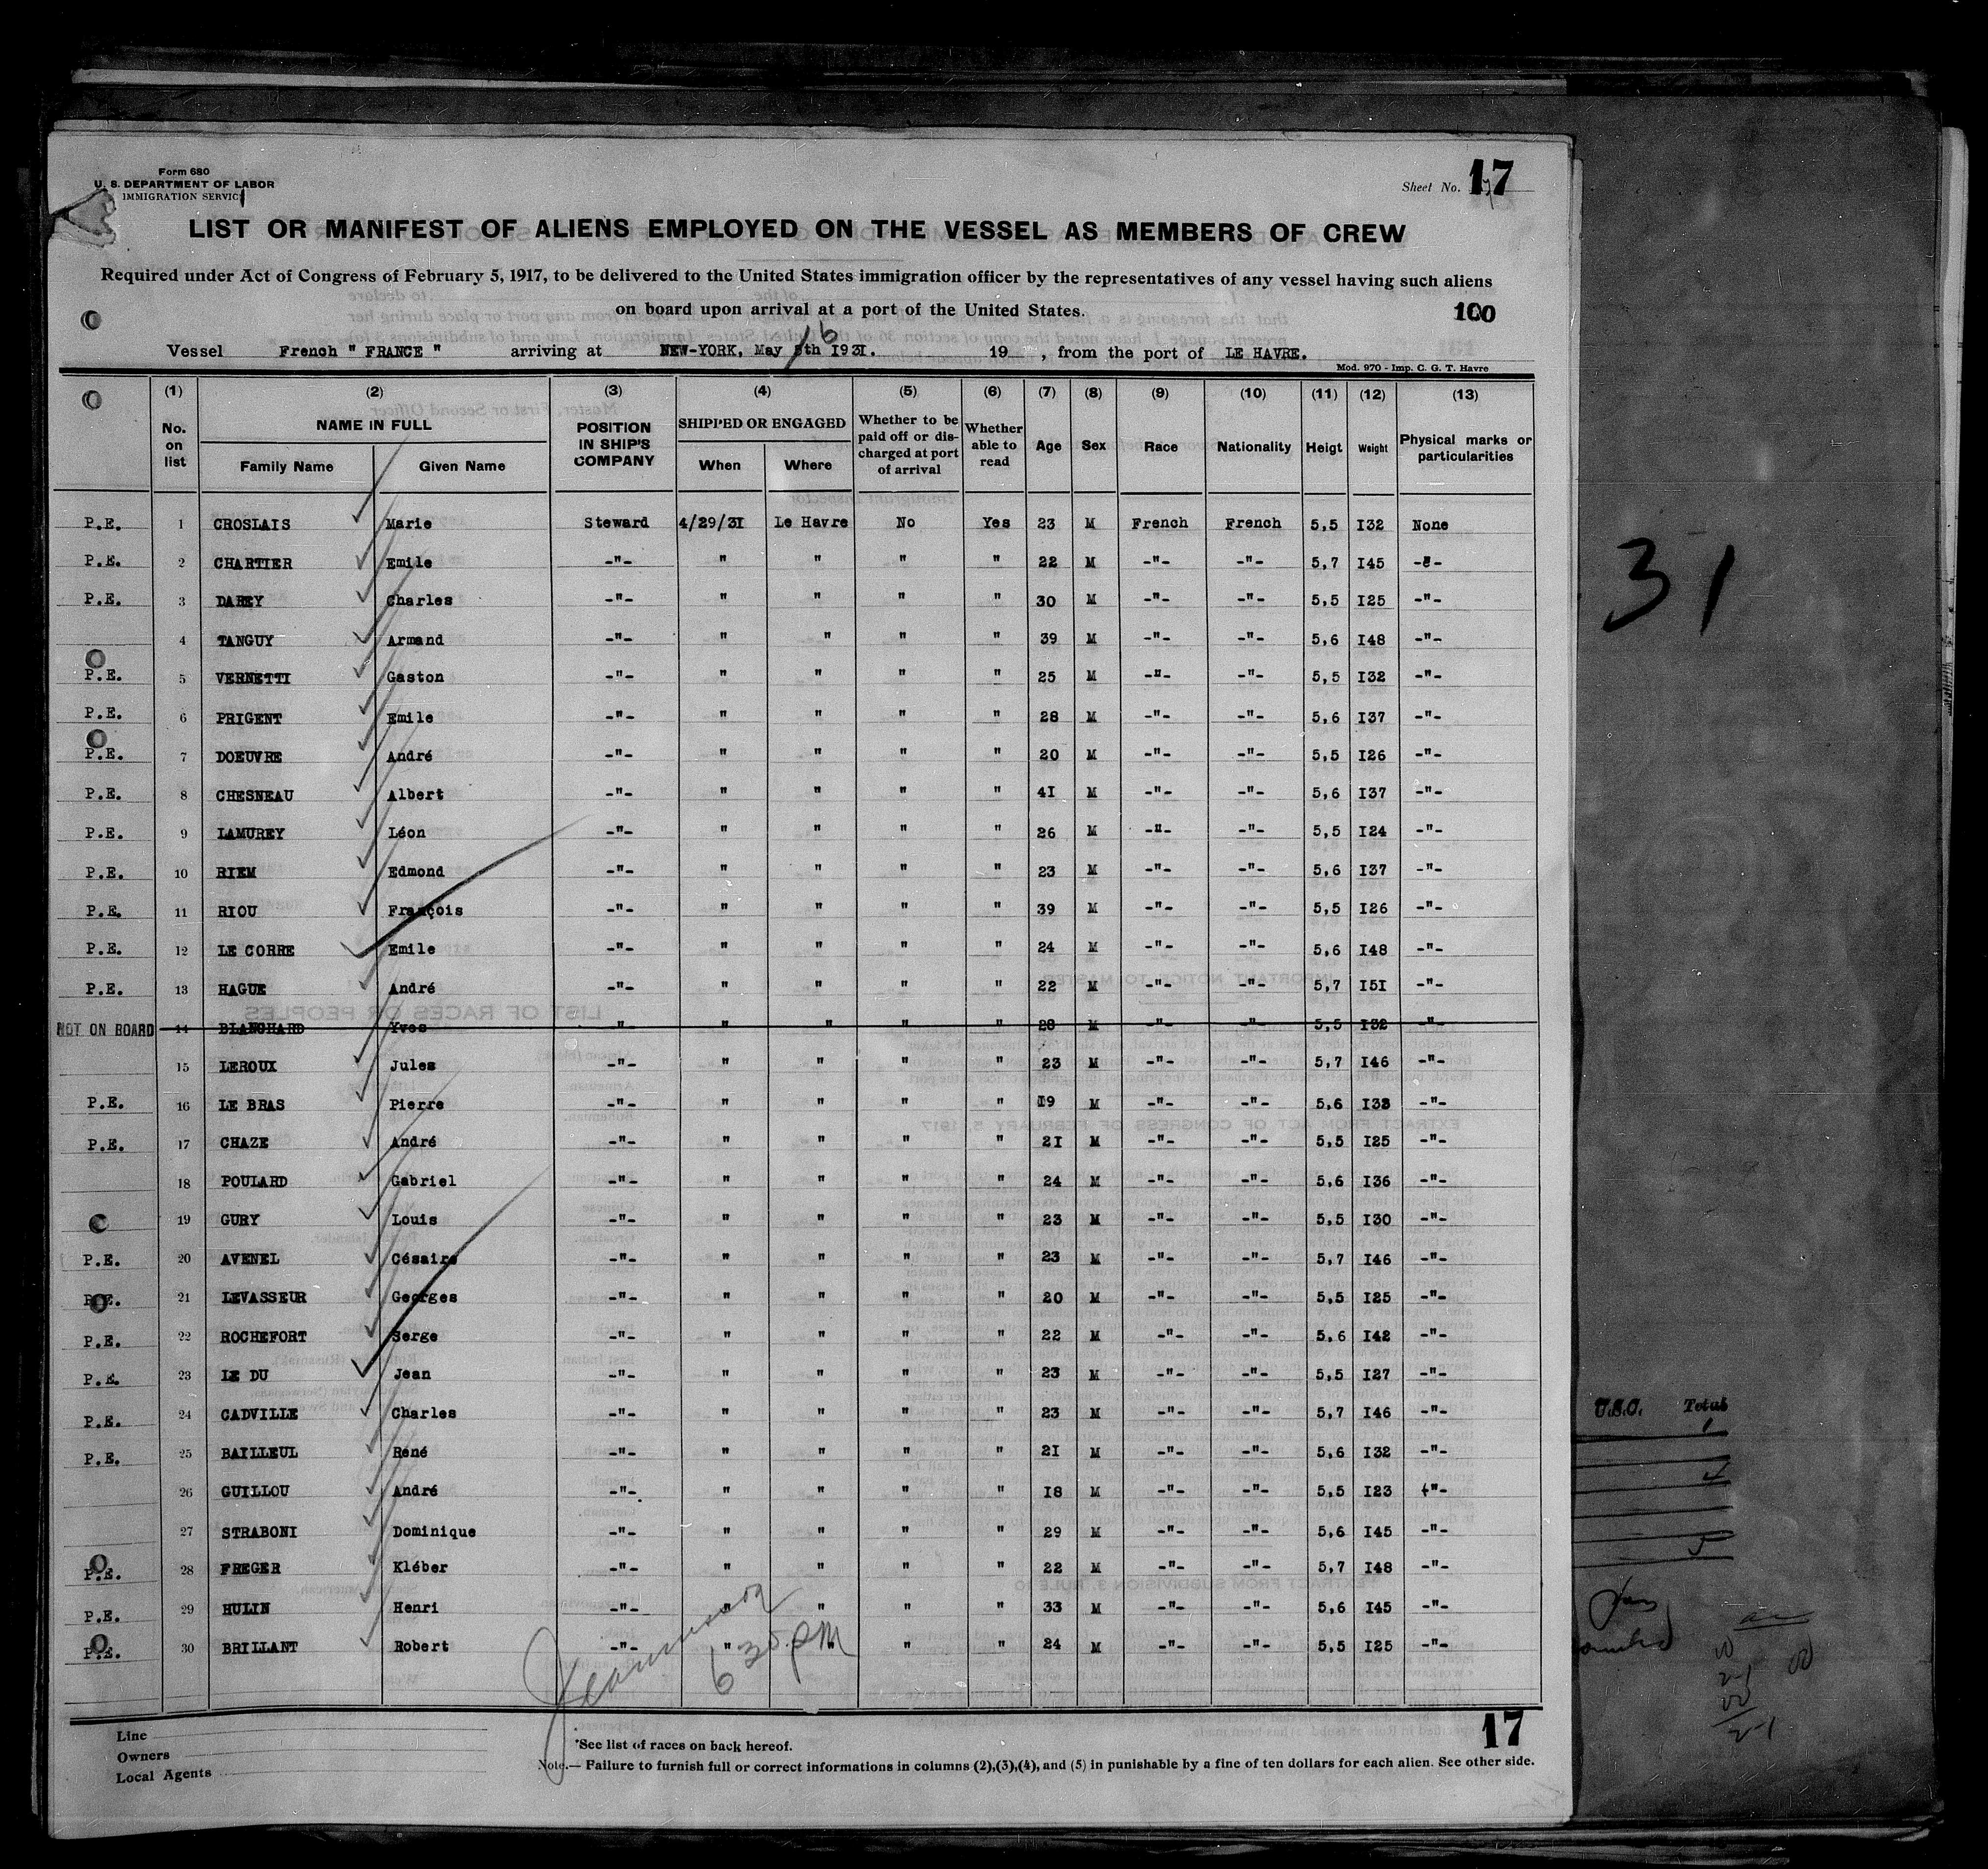 Form 680
U. S. DEPARTMENT OF LABOR
IMMIGRATION SERVICE
Sheet No. 17
LIST OR MANIFEST OF ALIENS EMPLOYED ON THE VESSEL AS MEMBERS OF CREW
Required under Act of Congress of February 5, 1917, to be delivered to the United States immigration officer by the representatives of any vessel having such aliens
on board upon arrival at a port of the United States.
100
Vessel French " FRANCE " arriving at NEW-YORK, May 6 8th I931. 19 , from the port of LE HAVRE.
Mod. 970 - Imp. C. G. T. Havre
(1) (2) (3) (4) (5) (6) (7) (8) (9) (10) (11) (12) (13)
No. on list NAME IN FULL Family Name Given Name POSITION IN SHIP'S COMPANY SHIPPED OR ENGAGED When Where Whether to be paid off or discharged at port of arrival Whether able to read Age Sex Race Nationality Heigt Weight Physical marks or particularities
P.E. 1 CROSLAIS Marie Steward 4/29/3I Le Havre No Yes 23 M French French 5,5 I32 None
P.E. 2 CHARTIER Emile -"- " " " " 22 M -"- -"- 5,7 I45 -"-
P.E. 3 DAREY Charles -"- " " " " 30 M -"- -"- 5,5 I25 -"-
4 TANGUY Armand -"- " " " " 39 M -"- -"- 5,6 I48 -"-
P.E. 5 VERNETTI Gaston -"- " " " " 25 M -"- -"- 5,5 I32 -"-
P.E. 6 PRIGENT Emile -"- " " " " 28 M -"- -"- 5,6 I37 -"-
P.E. 7 DOEUVRE André -"- " " " " 20 M -"- -"- 5,5 I26 -"-
P.E. 8 CHESNEAU Albert -"- " " " " 4I M -"- -"- 5,6 I37 -"-
P.E. 9 LAMUREY Léon -"- " " " " 26 M -"- -"- 5,5 I24 -"-
P.E. 10 RIEM Edmond -"- " " " " 23 M -"- -"- 5,6 I37 -"-
P.E. 11 RIOU François -"- " " " " 39 M -"- -"- 5,5 I26 -"-
P.E. 12 LE CORRE Emile -"- " " " " 24 M -"- -"- 5,6 I48 -"-
P.E. 13 HAGUE André -"- " " " " 22 M -"- -"- 5,7 I5I -"-
NOT ON BOARD 14 BLANCHARD Yves " " " " " 28 M -"- -"- 5,5 I32 -"-
15 LEROUX Jules -"- " " " " 23 M -"- -"- 5,7 I46 -"-
P.E. 16 LE BRAS Pierre -"- " " " " I9 M -"- -"- 5,6 I38 -"-
P.E. 17 CHAZE André -"- " " " " 2I M -"- -"- 5,5 I25 -"-
18 POULARD Gabriel -"- " " " " 24 M -"- -"- 5,6 I36 -"-
19 GURY Louis -"- " " " " 23 M -"- -"- 5,5 I30 -"-
P.E. 20 AVENEL Césaire -"- " " " " 23 M -"- -"- 5,7 I46 -"-
P.E. 21 LEVASSEUR Georges -"- " " " " 20 M -"- -"- 5,5 I25 -"-
P.E. 22 ROCHEFORT Serge -"- " " " " 22 M -"- -"- 5,6 I42 -"-
P.E. 23 LE DU Jean -"- " " " " 23 M -"- -"- 5,5 I27 -"-
P.E. 24 CADVILLE Charles -"- " " " " 23 M -"- -"- 5,7 I46 -"-
P.E. 25 BAILLEUL René -"- " " " " 2I M -"- -"- 5,6 I32 -"-
26 GUILLOU André -"- " " " " I8 M -"- -"- 5,5 I23 -"-
27 STRABONI Dominique -"- " " " " 29 M -"- -"- 5,6 I45 -"-
P.E. 28 FREGER Kléber -"- " " " " 22 M -"- -"- 5,7 I48 -"-
P.E. 29 HULIN Henri -"- " " " " 33 M -"- -"- 5,6 I45 -"-
P.E. 30 BRILLANT Robert -"- " " " " 24 M -"- -"- 5,5 I25 -"-
6 30 pm
17
Line
Owners
Local Agents
*See list of races on back hereof.
Note.— Failure to furnish full or correct informations in columns (2),(3),(4), and (5) in punishable by a fine of ten dollars for each alien. See other side.
31
U.S.C. Total